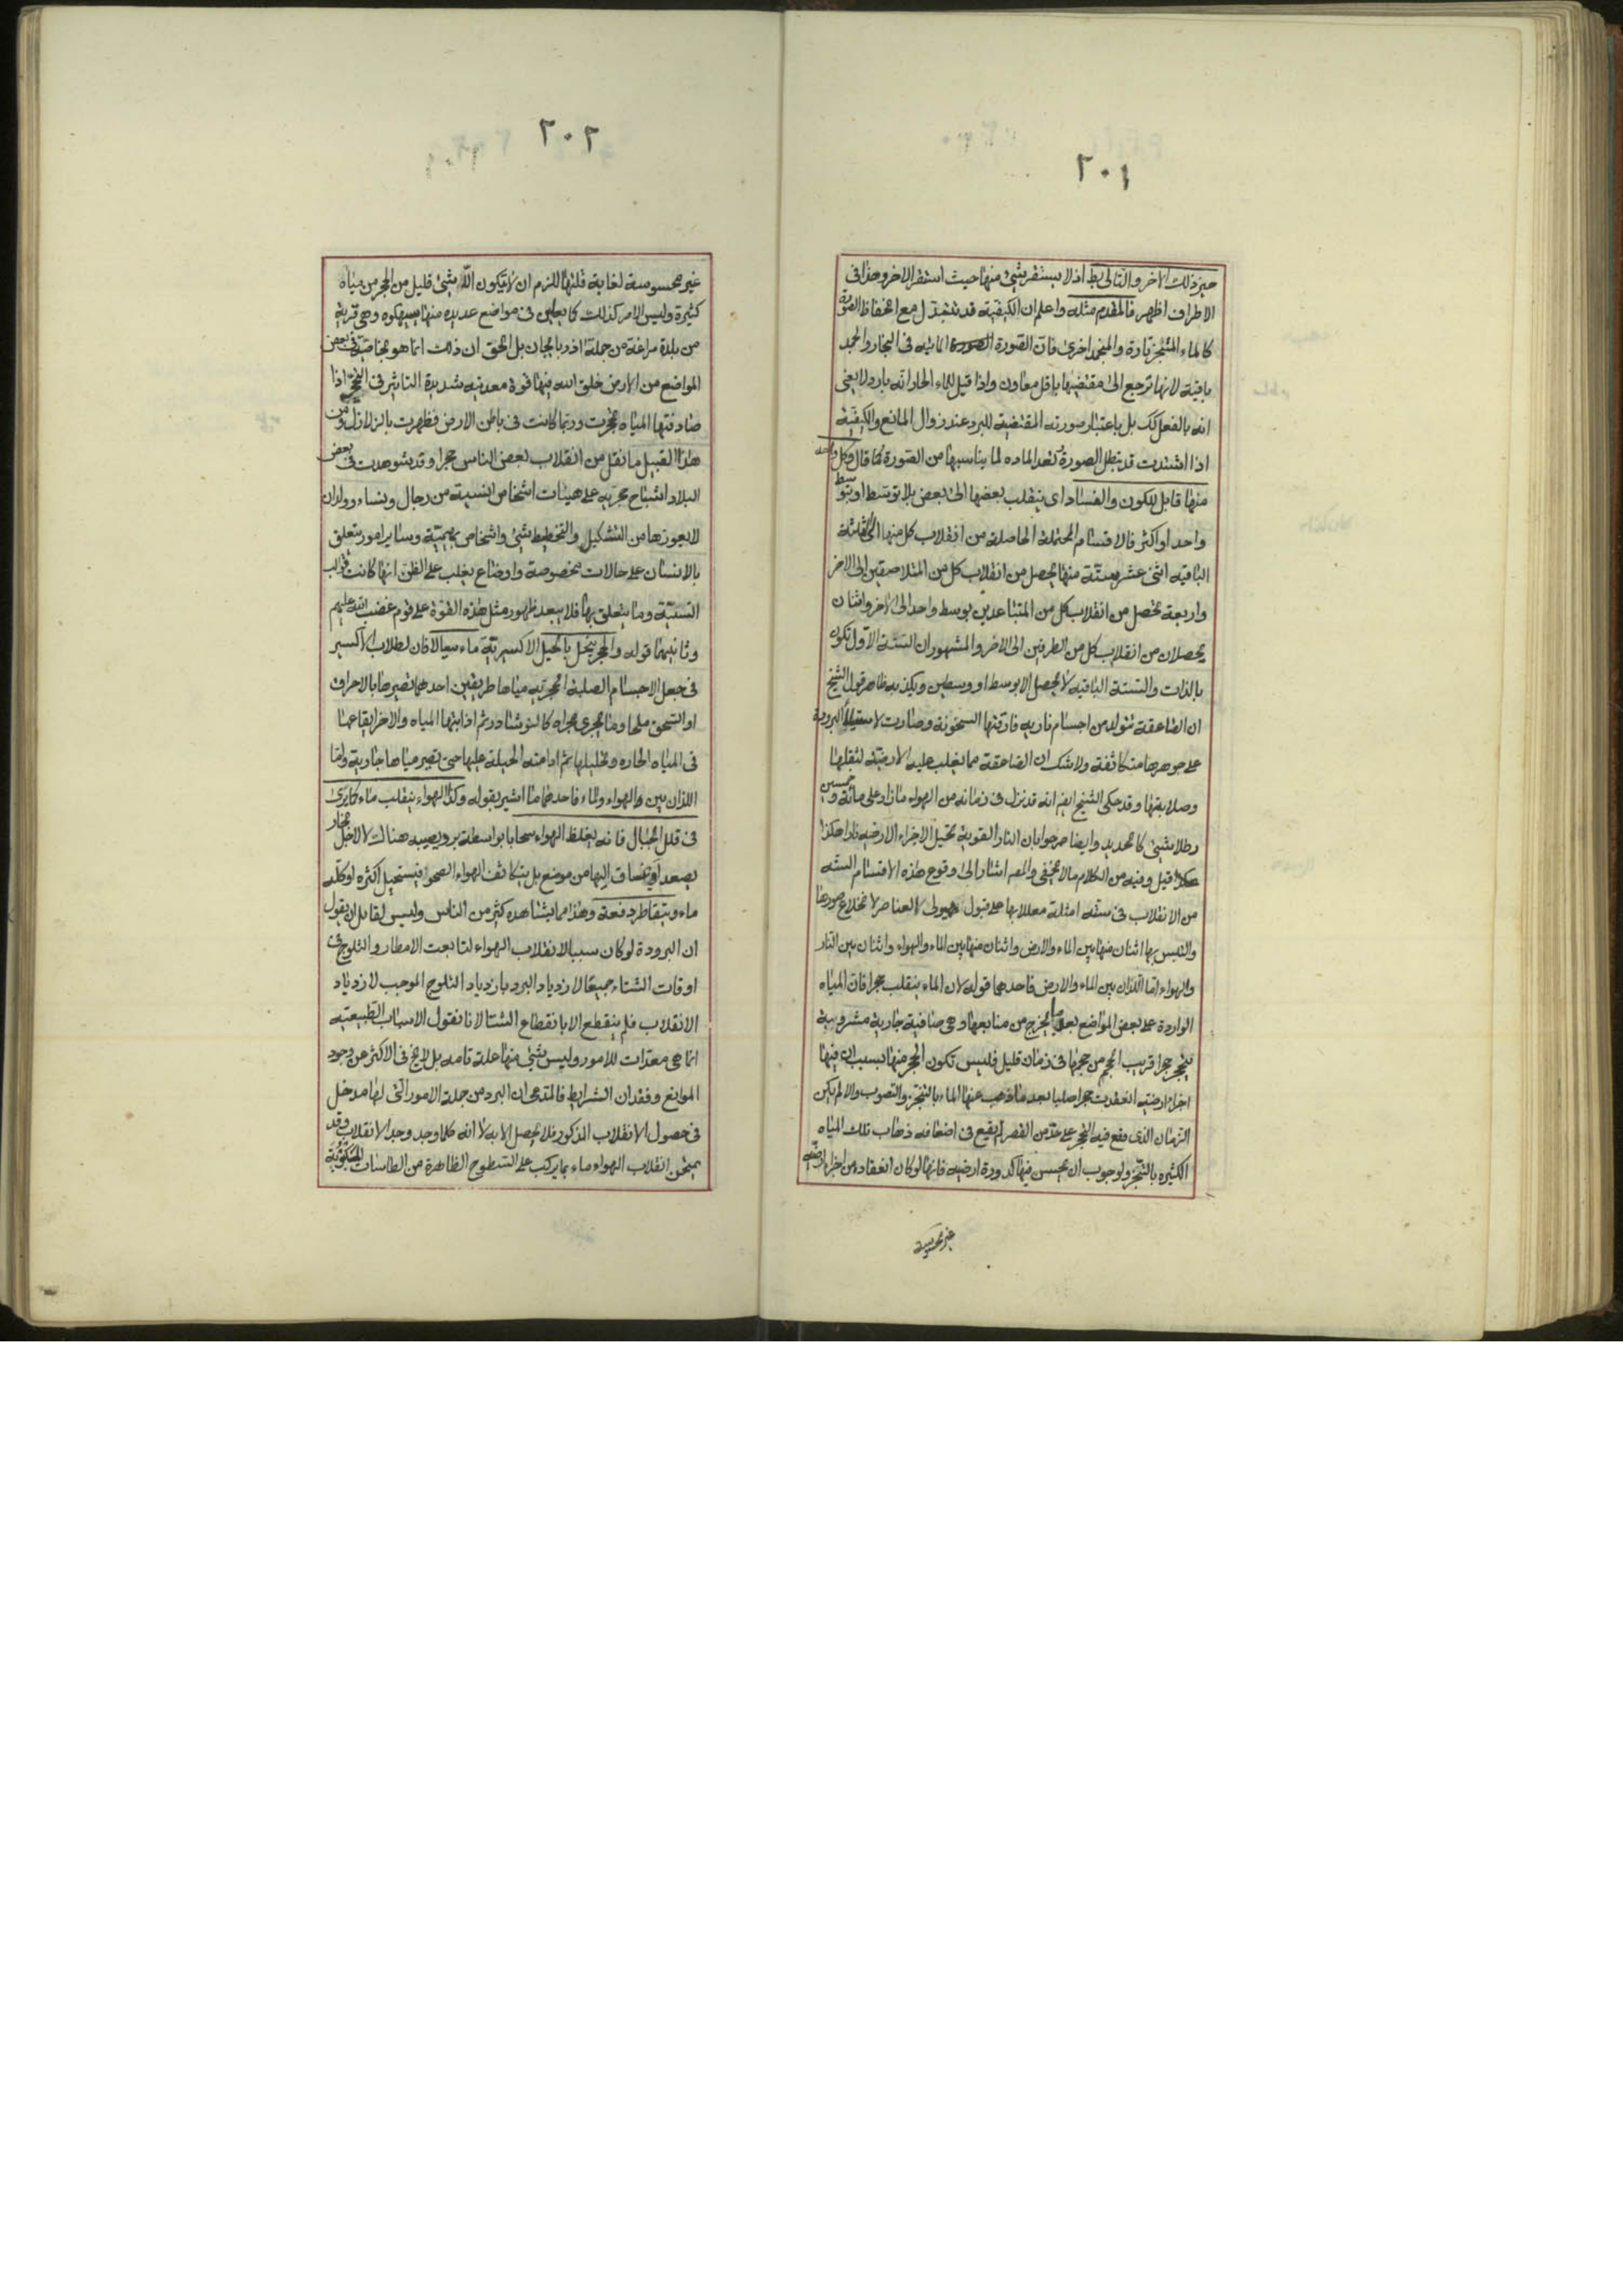 ٢٠١
حيز ذلك الاخر والتالى بط اذ لا يستقر شئ منها حيث استقر الاخر وهذا فى
الاطراف اظهر فالمقدم مثله واعلم ان الكيفية قد تتبدل مع انحفاظ الصورة
كالماء المتسخن تارة والمنجمد اخرى فان الصورة المائيه فى البخار والجمد
باقية لانها ترجع الى مقتضيها باقل معاون واذا قيل للماء الحار انه بارد لا يعنى
انه بالفعل كك بل باعتبار صورته المقتضية للبرد عند زوال المانع والكيفية
اذا اشتدت قد تبطل الصورة وتعد الماده لما يناسبها من الصورة كما قال وكل واحد
منها قابل للكون والفساد اى ينقلب بعضها الى بعض بلا توسط او بتوسط
واحد او اكثر فالاقسام المحتملة الحاصلة من انقلاب كل منها الى الثلثة
الباقيه اثنى عشر ستة منها تحصل من انقلاب كل من المتلاصقين الى الاخر
واربعة تحصل من انقلاب كل من المتباعدين بوسط واحد الى الاخر واثنان
يحصلان من انقلاب كل من الطرفين الى الاخر والمشهور ان الستة الاول تكون
بالذات والستة الباقيه لا تحصل الا بوسط او وسطين ويكذبه ظاهر قول الشيخ
ان الصاعقة تتولد من اجسام ناريه فارقتها السخونة وصارت لاستيلاء البرودة
على جوهرها متكاثفة ولا شك ان الصاعقة مما يغلب عليه الارضية لثقلها
وصلابتها وقد حكى الشيخ ايضا انه قد نزل فى زمانه من الهواء ما زاد على مائة وخمسين
رطلا شئ كالحديد وايضا صرحوا بان النار القوية تحيل الاجزاء الارضيه نارا هكذا
قيل وفيه من الكلام ما لا يخفى والمص اشار الى وقوع هذه الاقسام الستة
من الانقلاب فى ستة امثلة معللا بها على قبول هيولى العناصر لانخلاع صورها
والتلبس بها اثنان منها بين الماء والارض واثنان منها بين الماء والهواء واثنان بين النار
والهواء اما اللذان بين الماء والارض فاحدهما قوله لان الماء ينقلب حجرا فان المياه
الواردة على بعض المواضع بعد ما تخرج من منابعها وهى صافية جارية مشروبة
يتحجر حجرا قريب الحجم من حجمها فى زمان قليل فليس تكون الحجر منها بسبب ان فيها
اجزاء ارضية انعقدت حجرا صلبا بعد ما ذهب عنها الماء بالتبخر والنضوب والا لم يكن
الزمان الذى يقع فيه التحجر على حد من القصر لم يقع فى اضعافه ذهاب تلك المياه
الكثيره بالتبخر ولوجوب ان يحس فيها كدورة ارضيه فانها لو كان انعقاده من اجزاء ارضيه
غير محسوسة
٢٠٢
غير محسوسة لغاية قلتها للزم ان لا يكون الا شئ قليل من الحجر من مياه
كثيرة وليس الامر كذلك كما يعاين فى مواضع عديده منها سيهكوه وهى قرية
من بلدة مراغة من جملة اذربايجان بل الحق ان ذلك انما هو بخاصية فى بعض
المواضع من الارض خلق الله فيها قوة معدنيه شديدة التاثير فى التحجر اذا
صادفتها المياه تحجرت وربما كانت فى باطن الارض فظهرت بالزلازل ومن
هذا القبيل ما نقل من انقلاب بعض الناس حجرا وقد شوهدت فى بعض
البلاد اشباح حجريه على هيئات اشخاص انسية من رجال ونساء وولدان
لا يعوزها من التشكيل والتخطيط شئ واشخاص بهيمية وساير امور يتعلق
بالانسان على حالات مخصوصة واوضاع يغلب على الظن انها كانت قوالب
انسية وما يتعلق بها فلا يبعد ظهور مثل هذه القوة على قوم غضب الله عليهم
وثانيهما قوله والحجر ينحل بالحيل الاكسيرية ماء سيالا فان لطلاب الاكسير
فى جعل الاجسام الصلبة الحجريه مياها طريقين احدهما تصيرها بالاحراق
او السحق ملحا وما يجرى مجراه كالنوشادر ثم اذابتها بالمياه والاخر ايقاعها
فى المياه الحاده وتحليلها ثم ادامته الحيلة عليها حتى تصير مياها جارية واما
اللذان بين الهواء والماء فاحدهما ما اشير بقوله وكذا الهواء ينقلب ماء كما يرى
فى قلل الجبال فانه يغلظ الهواء سحابا بواسطة برد يصيبه هناك لا لاجل بخار
يصعد او ينساق اليها من موضع بل يتكاثف الهواء الصحو فيستحيل اكثره او كله
ماء ويتقاطر دفعة وهذا مما يشاهده كثير من الناس وليس لقايل ان يقول
ان البرودة لو كان سببا لانقلاب الهواء لتابعت الامطار والثلوج فى
اوقات الشتاء جميعا لازدياد البرد بازدياد الثلوج الموجب لازدياد
الانقلاب فلم ينقطع الا بانقطاع الشتا لانا نقول الاسباب الطبيعيه
انما هى معدات للامور وليس شئ منها علة تامه بل لا يخ فى الاكثر عن وجود
الموانع وفقدان الشرايط فالمدعى ان البرد من جملة الامور التى لها مدخل
فى حصول الانقلاب المذكور فلا يحصل الا به لا انه كلما وجد وجد الانقلاب وقد
يمتحن انقلاب الهواء ماء بما يركب على السطوح الظاهرة من الطاسات المكبوبة